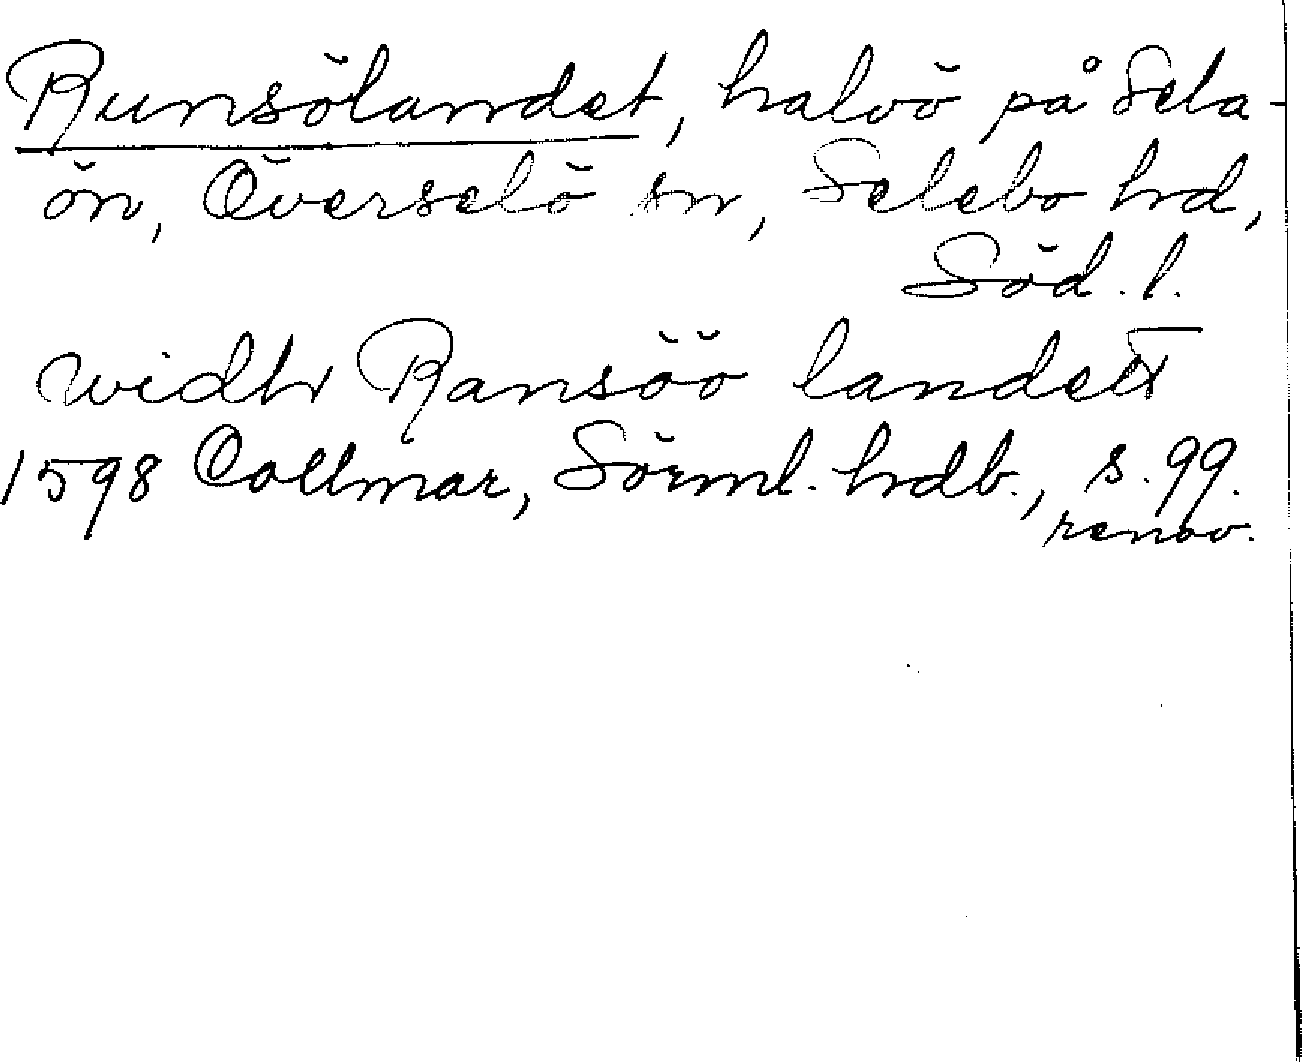 Runsölandet, halvö på Sela-
ön, Överselö sn, Selebo hd,
Söd. l.
widhr Ransöö landett
1598 Collmar, Sörml. hdb., s. 99.
renov.